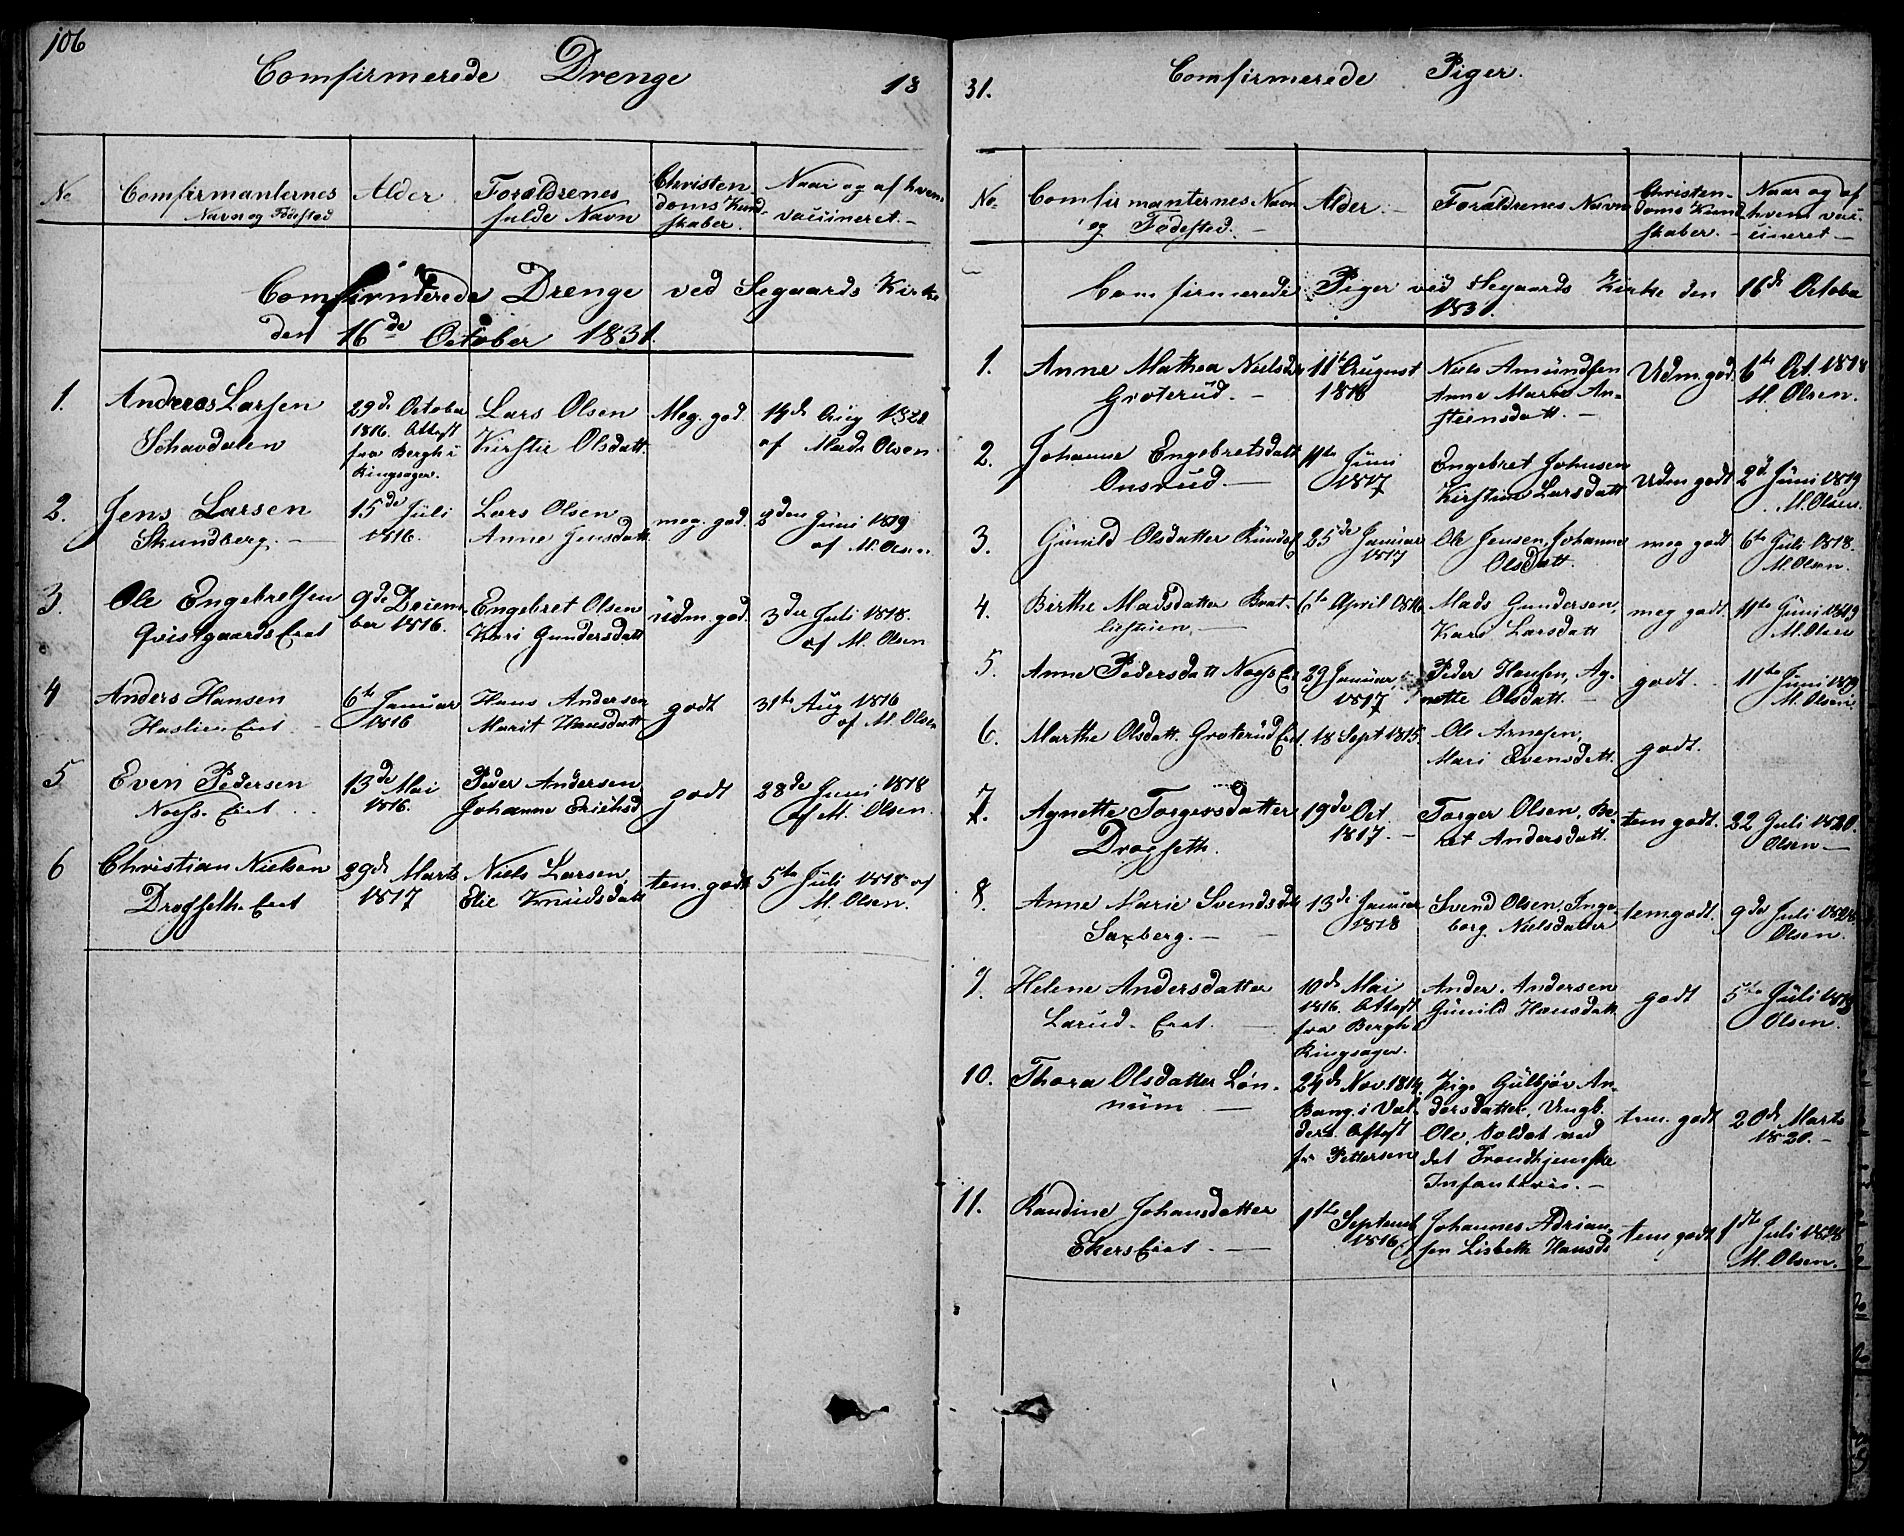 106
Comfirmerede Drenge
18
No
Comfirmanternes
Navn og Fødested
Alder
Forældrenes
fulde Navn
Christen-
doms Kund-
skaber.
Naar og af hvem
vaccineret. -
Comfirmerede Drenge ved Segaards Kirke
den 16de October 1831.
1. Anderos Larsen
29de October
Lars Olsen
Meg. god.
14de Aug
Schavdalen
1816. Attest
Kirstie Olsdatt.
af Mads Olsen
fra Bergh i
Ringsager.
2. Jens Larsen
15de Juli
Lars Olsen
meg. god.
2den Juni 1819
Skundberg. -
1816.
Anne Jensdatt
af M. Olsen
3. Ole Engebretsen
9de Decem-
Engebret Olsen
üdm. god.
3die Juli 1818.
Qvistgaards Eiet
ber 1816.
Kari Gundersdatt
af M. Olsen
4 Anders Hansen
6te Januar
Hans Andersen
godt
31te Aug 1816
Haslien Eiet
1816
Marit Hansdatt
af M. Olsen
5 Even Pedersen
13de Mai
Peder Andersen
godt
28de Juni 1818
Noess. Eiet
1816.
Johanne Erichsd
af M. Olsen
6 Christian Nielsen
29de Marts
Niels Larsen
tem. godt
5te Juli 1818 af
Dragseth. Eiet
1817
Elie Knudsdatt
M. Olsen.
31.
Comfirmerede Piger.
No.
Comfirmanternes Navn
og Fødested. -
Alder. -
Forældrenes Navne
Christen-
doms Kund
skaber. -
Naar og af
hvem vac-
cineret -
Comfirmerede Piger ved Segaards Kirke den 16de Octobe
1831.
1. Anne Mathea Nielsdr
11te August
Niels Amundsen
Udm. god.
6te Oct. 1818
Groterud. -
1816
Anne Marie An-
M. Olsen.
steensdatt. -
2. Johanne Engebretsdatt
11te Juni
Engebret Johnsen
Udm godt
2de Juni 1819
Onsrud. -
1817
Kirstine Larsdatt
M. Olsen.
3. Gunild Olsdatter
25de Januar
Ole Jensen, Johanne
meg godt
6te Juli 1818.
1817
Olsdatt.
M. Olsen.
4. Birthe Madsdatter Brat-
6te April 1816
Mads Gundersen,
meg godt
11te Juni 1819
listuen. -
Kari Larsdatt
M. Olsen
5. Anne Pedersdatt Noess Eiet
29 Januar
Peder Hansen, Ag-
godt.
11te Juni 1819
1817
nette Olsdatt. -
M. Olsen.
6. Marthe Olsdatt. Groterud Eiet.
18 Sept 1815.
Ole Arnesen,
godt.
Mari Evensdatt.
7. Agnette Torgersdatter
19de Oct.
Torger Olsen, Be-
tem godt.
22 Juli 1820.
Dragseth.
1817. -
ret Andersdatt.
Olsen -
8. Anne Marie Svendsdatt
13de Januar
Svend Olsen, Inge-
tem godt.
9de Juli
Saxberg. -
1818
borg Nielsdatter
Olsen.
9. Helene Andersdatter
10de Mai
Ander. Andersen
godt
5te Juli 1819
Larud. Eiet. -
1816. Attest
Gunild Hansdatt.
Olsen.
fra Bergh i
Ringsager.
10. Thora Olsdatter Løn-
24de Nov. 1814.
Pige Gulbjør An-
tem. godt
20de Marts
num -
Bang. i Val-
dersdatter, Ungk.
1820. -
ders. Attest
Ole, Soldat ved
fr Pettersen
det Trondhjemske
Infanterie. -
11. Randine Johansdatter
1te Septemb
Johannes Adrian-
tem. godt
1ste Juli 1818
Ekers Eiet. -
1816.
sen Lisbeth Hansd.
M. Olsen.